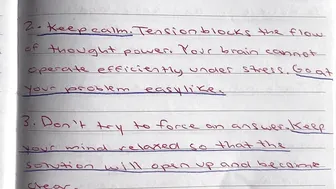 2. Keep calm. Tension blocks the flow
of thought power. Your brain cannot
operate efficiently under stress. Go at
your problem easy like.
3. Don't try to force an answer. Keep
your mind relaxed so that the
solution will open up and become
clear.